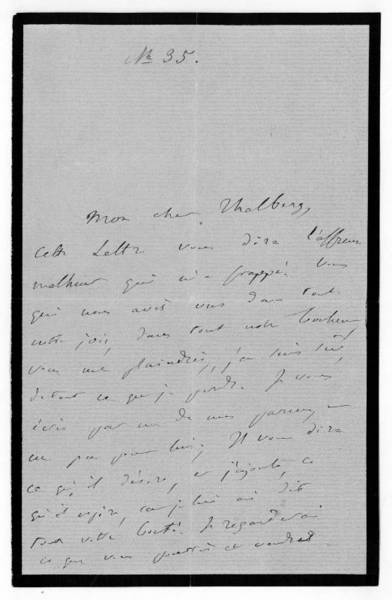 No 35.
Mon cher Thalberg,
Cette Lettre vous dira l'affreux
malheur qui m'a frappé. Vous
qui nous avez vus dans tout
notre joie, dans tout notre bonheur
vous me plaindrez, j'en suis sûr,
de tout ce que je perds. Je vous
écris par un de mes parens
un peu pour lui, Il vous dira
ce qu'il désire, et j'ajoute, ce
qu'il espère, car je lui ai dit
votre bonté. Je regarderai
ce que vous